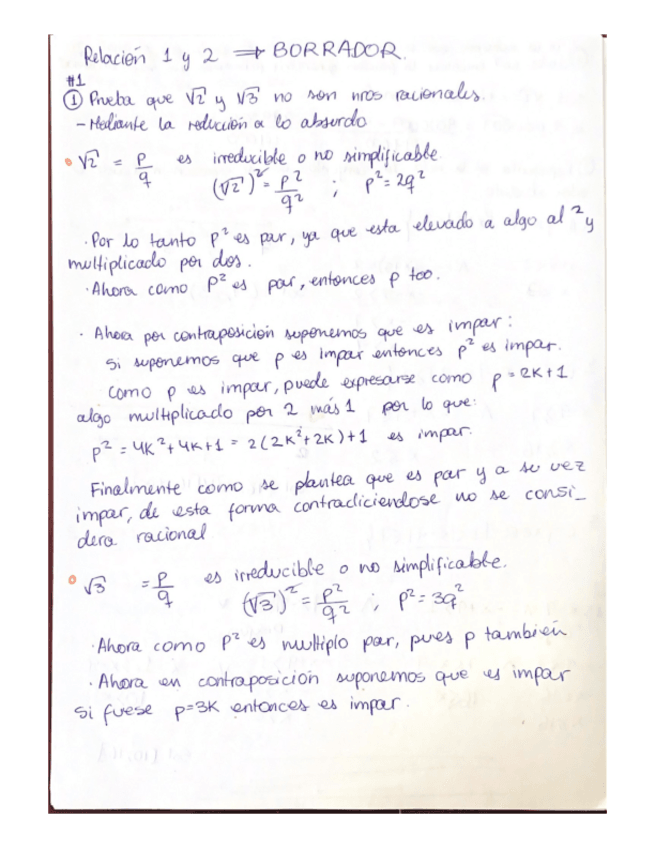 Relación 1 y 2 ⇒ BORRADOR.
#1
① Prueba que √2 y √3 no son nros racionales.
- Mediante la reducción a lo absurdo
√2 = p/q es irreducible o no simplificable.
(√2)² = p²/q² ; p² = 2q²
· Por lo tanto p² es par, ya que esta elevado a algo al 2 y
multiplicado por dos.
· Ahora como p² es par, entonces p too.
· Ahora por contraposicion suponemos que es impar:
Si suponemos que p es impar entonces p² es impar.
Como p es impar, puede expresarse como p = 2K+1
algo multiplicado por 2 más 1 por lo que:
p² = 4K² + 4K + 1 = 2(2K² + 2K) + 1 es impar.
Finalmente como se plantea que es par y a su vez
impar, de esta forma contradiciendose no se consi_
dera racional.
√3 = p/q es irreducible o no simplificable.
(√3)² = p²/q² ; p² = 3q²
· Ahora como p² es multiplo par, pues p también
· Ahora en contraposicion suponemos que es impar
si fuese p=3K entonces es impar.